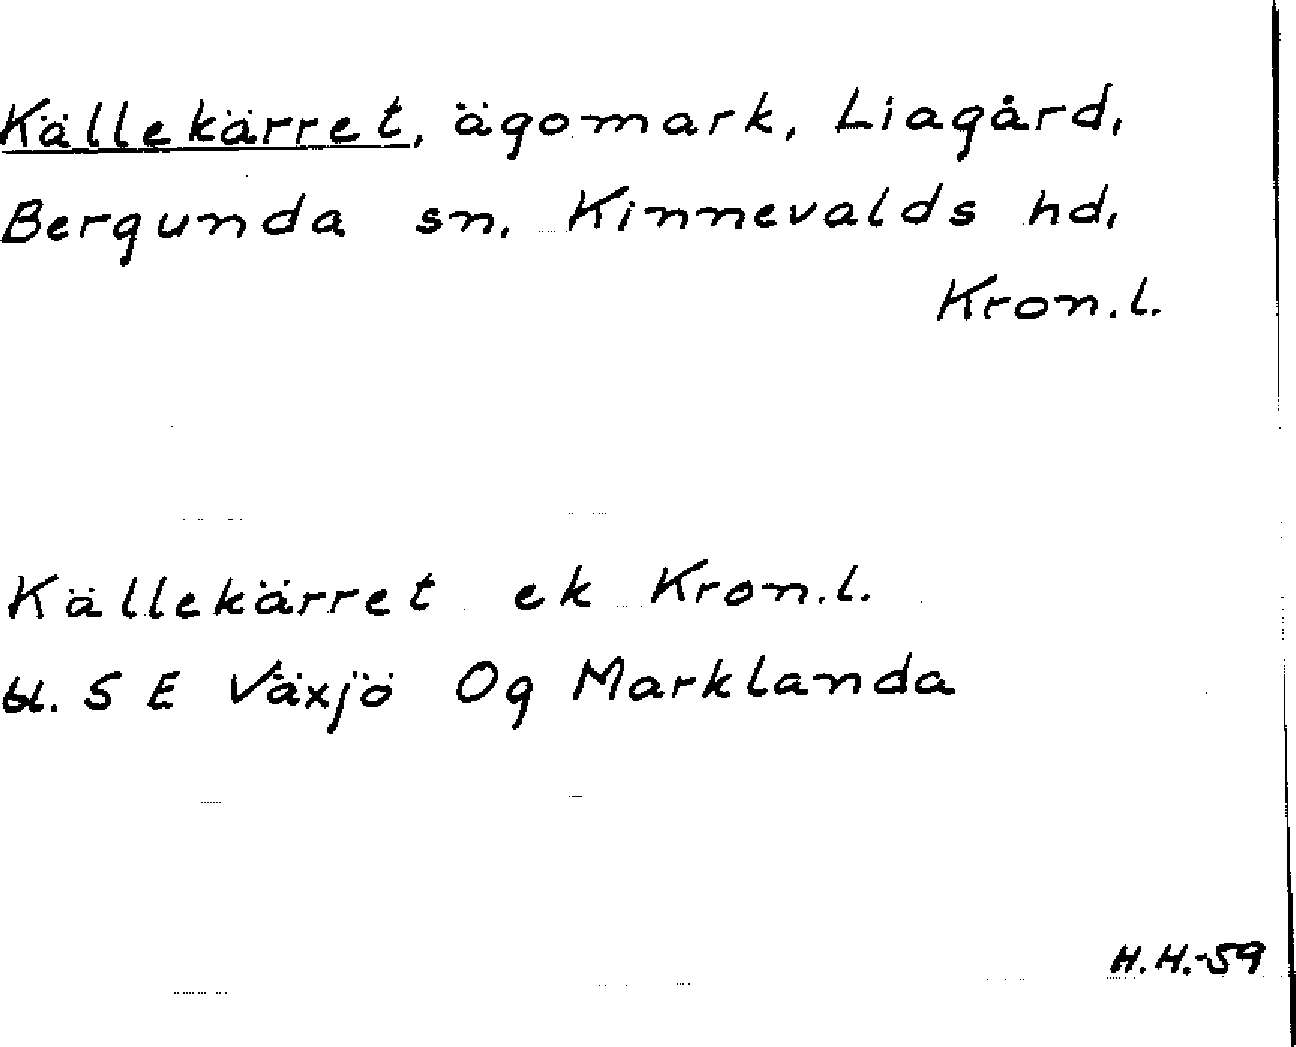 Källekärret, ägomark, Liagård,
Bergunda sn, Kinnevalds hd,
Kron.l.
Källekärret ek Kron.l.
bl. 5 E Växjö Og Marklanda
H.H.-59